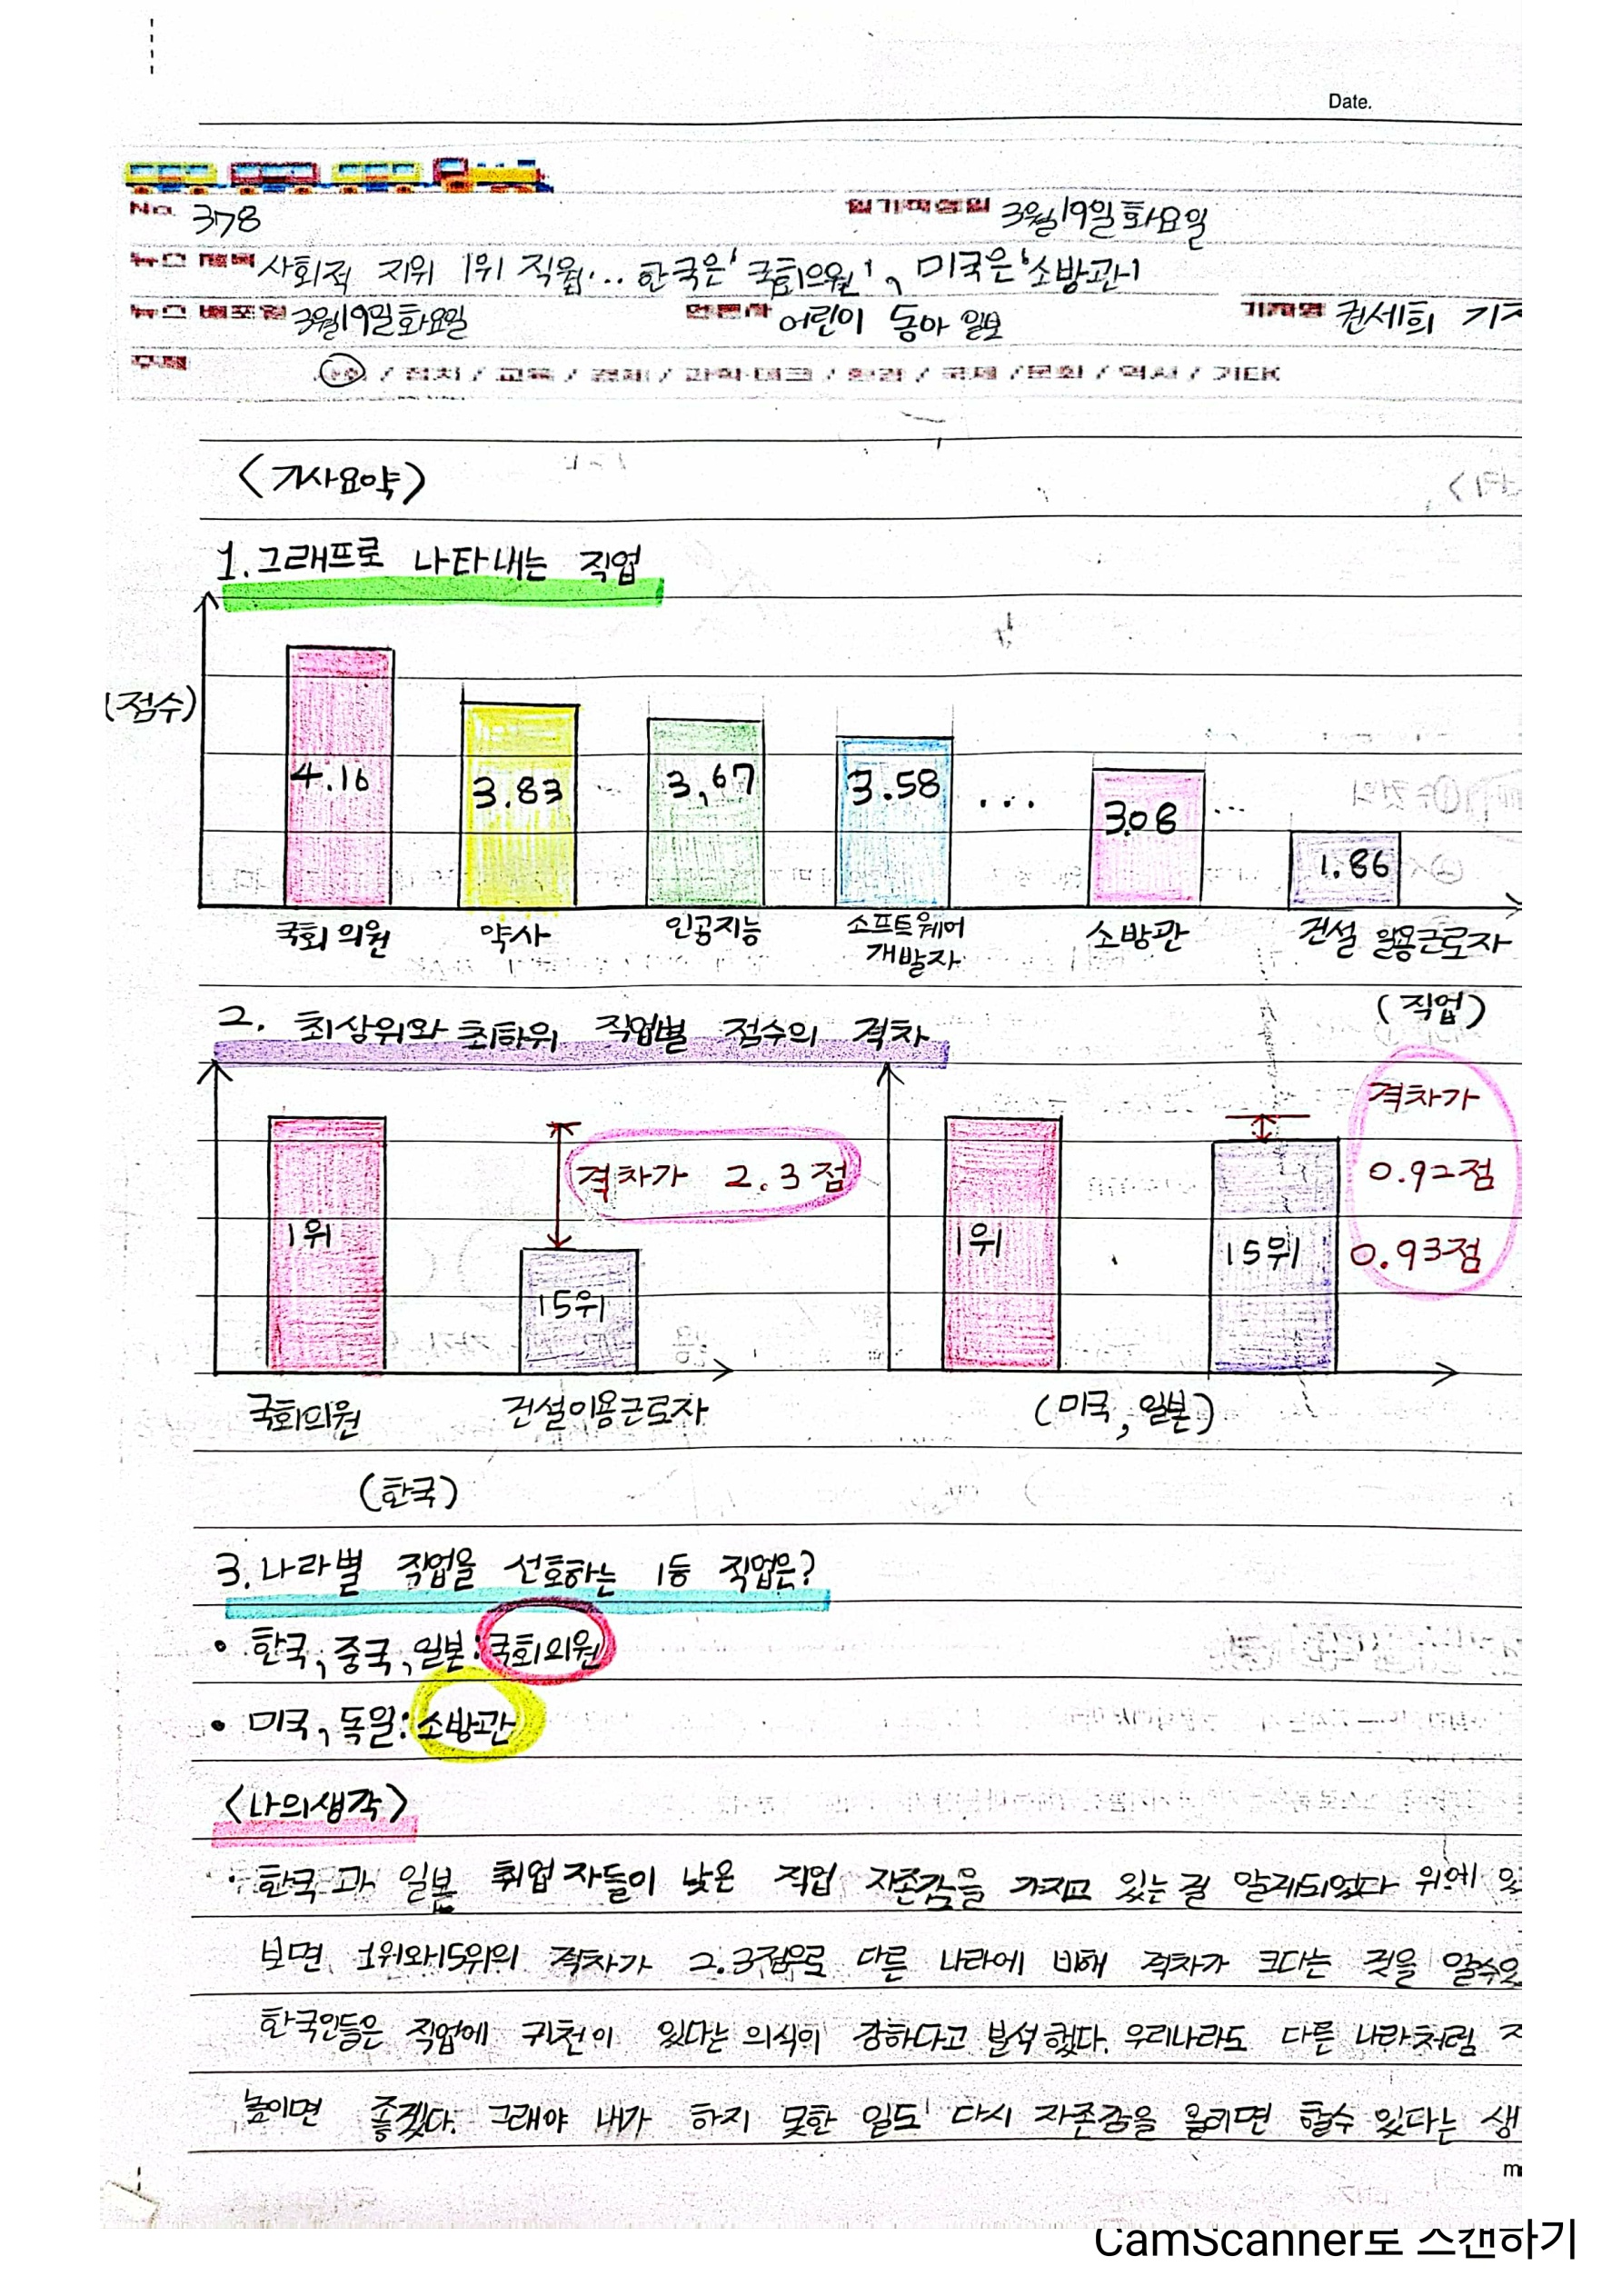 Date.
No. 378
일기작성일 3월19일화요일
뉴스 제목 사회적 지위 1위 직업... 한국은 '국회의원', 미국은 '소방관'
뉴스 배포일 3월19일화요일 언론사 어린이 동아 일보 기자명 권세희 기
주제 사회 / 정치 / 교육 / 경제 / 과학·테크 / 환경 / 국제 / 문화 / 역사 / 기타
<기사요약>
1. 그래프로 나타내는 직업
(점수)
4.16 3.83 3,67 3.58 ... 3.08 ... 1.86
국회 의원 약사 인공지능 소프트웨어 개발자 소방관 건설 일용근로자
(직업)
2. 최상위와 최하위 직업별 점수의 격차
격차가 2.3점
1위 15위
국회의원 건설이용근로자
(한국)
격차가
0.92점
0.93점
1위 15위
(미국, 일본)
3. 나라별 직업을 선호하는 1등 직업은?
• 한국, 중국, 일본: 국회의원
• 미국, 독일: 소방관
<나의생각>
· 한국과 일본 취업자들이 낮은 직업 자존감을 가지고 있는걸 알게되었다 위에
보면 1위와15위의 격차가 2.3점으로 다른 나라에 비해 격차가 크다는 것을 알수
한국인들은 직업에 귀천이 있다는 의식이 강하다고 분석했다. 우리나라도 다른 나라처럼
높이면 좋겠다. 그래야 내가 하지 못한 일도 다시 자존감을 올리면 할수 있다는 생
CamScanner로 스캔하기